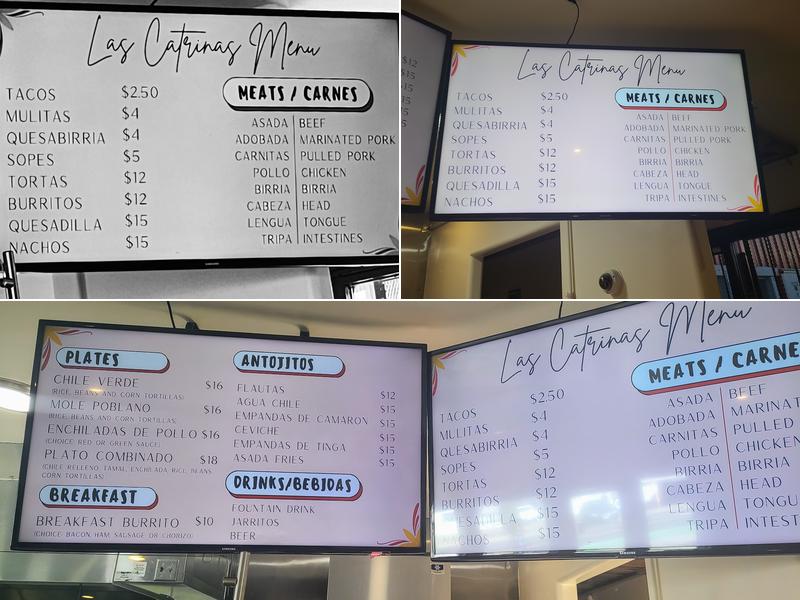 Las Catrinas Menu
TACOS $2.50
MULITAS $4
QUESABIRRIA $4
SOPES $5
TORTAS $12
BURRITOS $12
QUESADILLA $15
NACHOS $15
MEATS / CARNES
ASADA BEEF
ADOBADA MARINATED PORK
CARNITAS PULLED PORK
POLLO CHICKEN
BIRRIA BIRRIA
CABEZA HEAD
LENGUA TONGUE
TRIPA INTESTINES
SAMSUNG
$12
$15
$15
$15
$15
$15
Las Catrinas Menu
TACOS $2.50
MULITAS $4
QUESABIRRIA $4
SOPES $5
TORTAS $12
BURRITOS $12
QUESADILLA $15
NACHOS $15
MEATS / CARNES
ASADA BEEF
ADOBADA MARINATED PORK
CARNITAS PULLED PORK
POLLO CHICKEN
BIRRIA BIRRIA
CABEZA HEAD
LENGUA TONGUE
TRIPA INTESTINES
PLATES
CHILE VERDE $16
(RICE, BEANS AND CORN TORTILLAS)
MOLE POBLANO $16
(RICE, BEANS AND CORN TORTILLAS)
ENCHILADAS DE POLLO $16
(CHOICE RED OR GREEN SAUCE)
PLATO COMBINADO $18
(CHILE RELLENO, TAMAL, ENCHILADA RICE, BEANS
CORN TORTILLAS)
BREAKFAST
BREAKFAST BURRITO $10
(CHOICE BACON, HAM, SAUSAGE OR CHORIZO)
ANTOJITOS
FLAUTAS $12
AGUA CHILE $15
EMPANDAS DE CAMARON $15
CEVICHE $15
EMPANDAS DE TINGA $15
ASADA FRIES $15
DRINKS/BEBIDAS
FOUNTAIN DRINK
JARRITOS
BEER
SAMSUNG
Las Catrinas Menu
TACOS $2.50
MULITAS $4
QUESABIRRIA $4
SOPES $5
TORTAS $12
BURRITOS $12
QUESADILLA $15
NACHOS $15
MEATS / CARNE
ASADA BEEF
ADOBADA MARINAT
CARNITAS PULLED
POLLO CHICKEN
BIRRIA BIRRIA
CABEZA HEAD
LENGUA TONGU
TRIPA INTEST
SAMSUNG